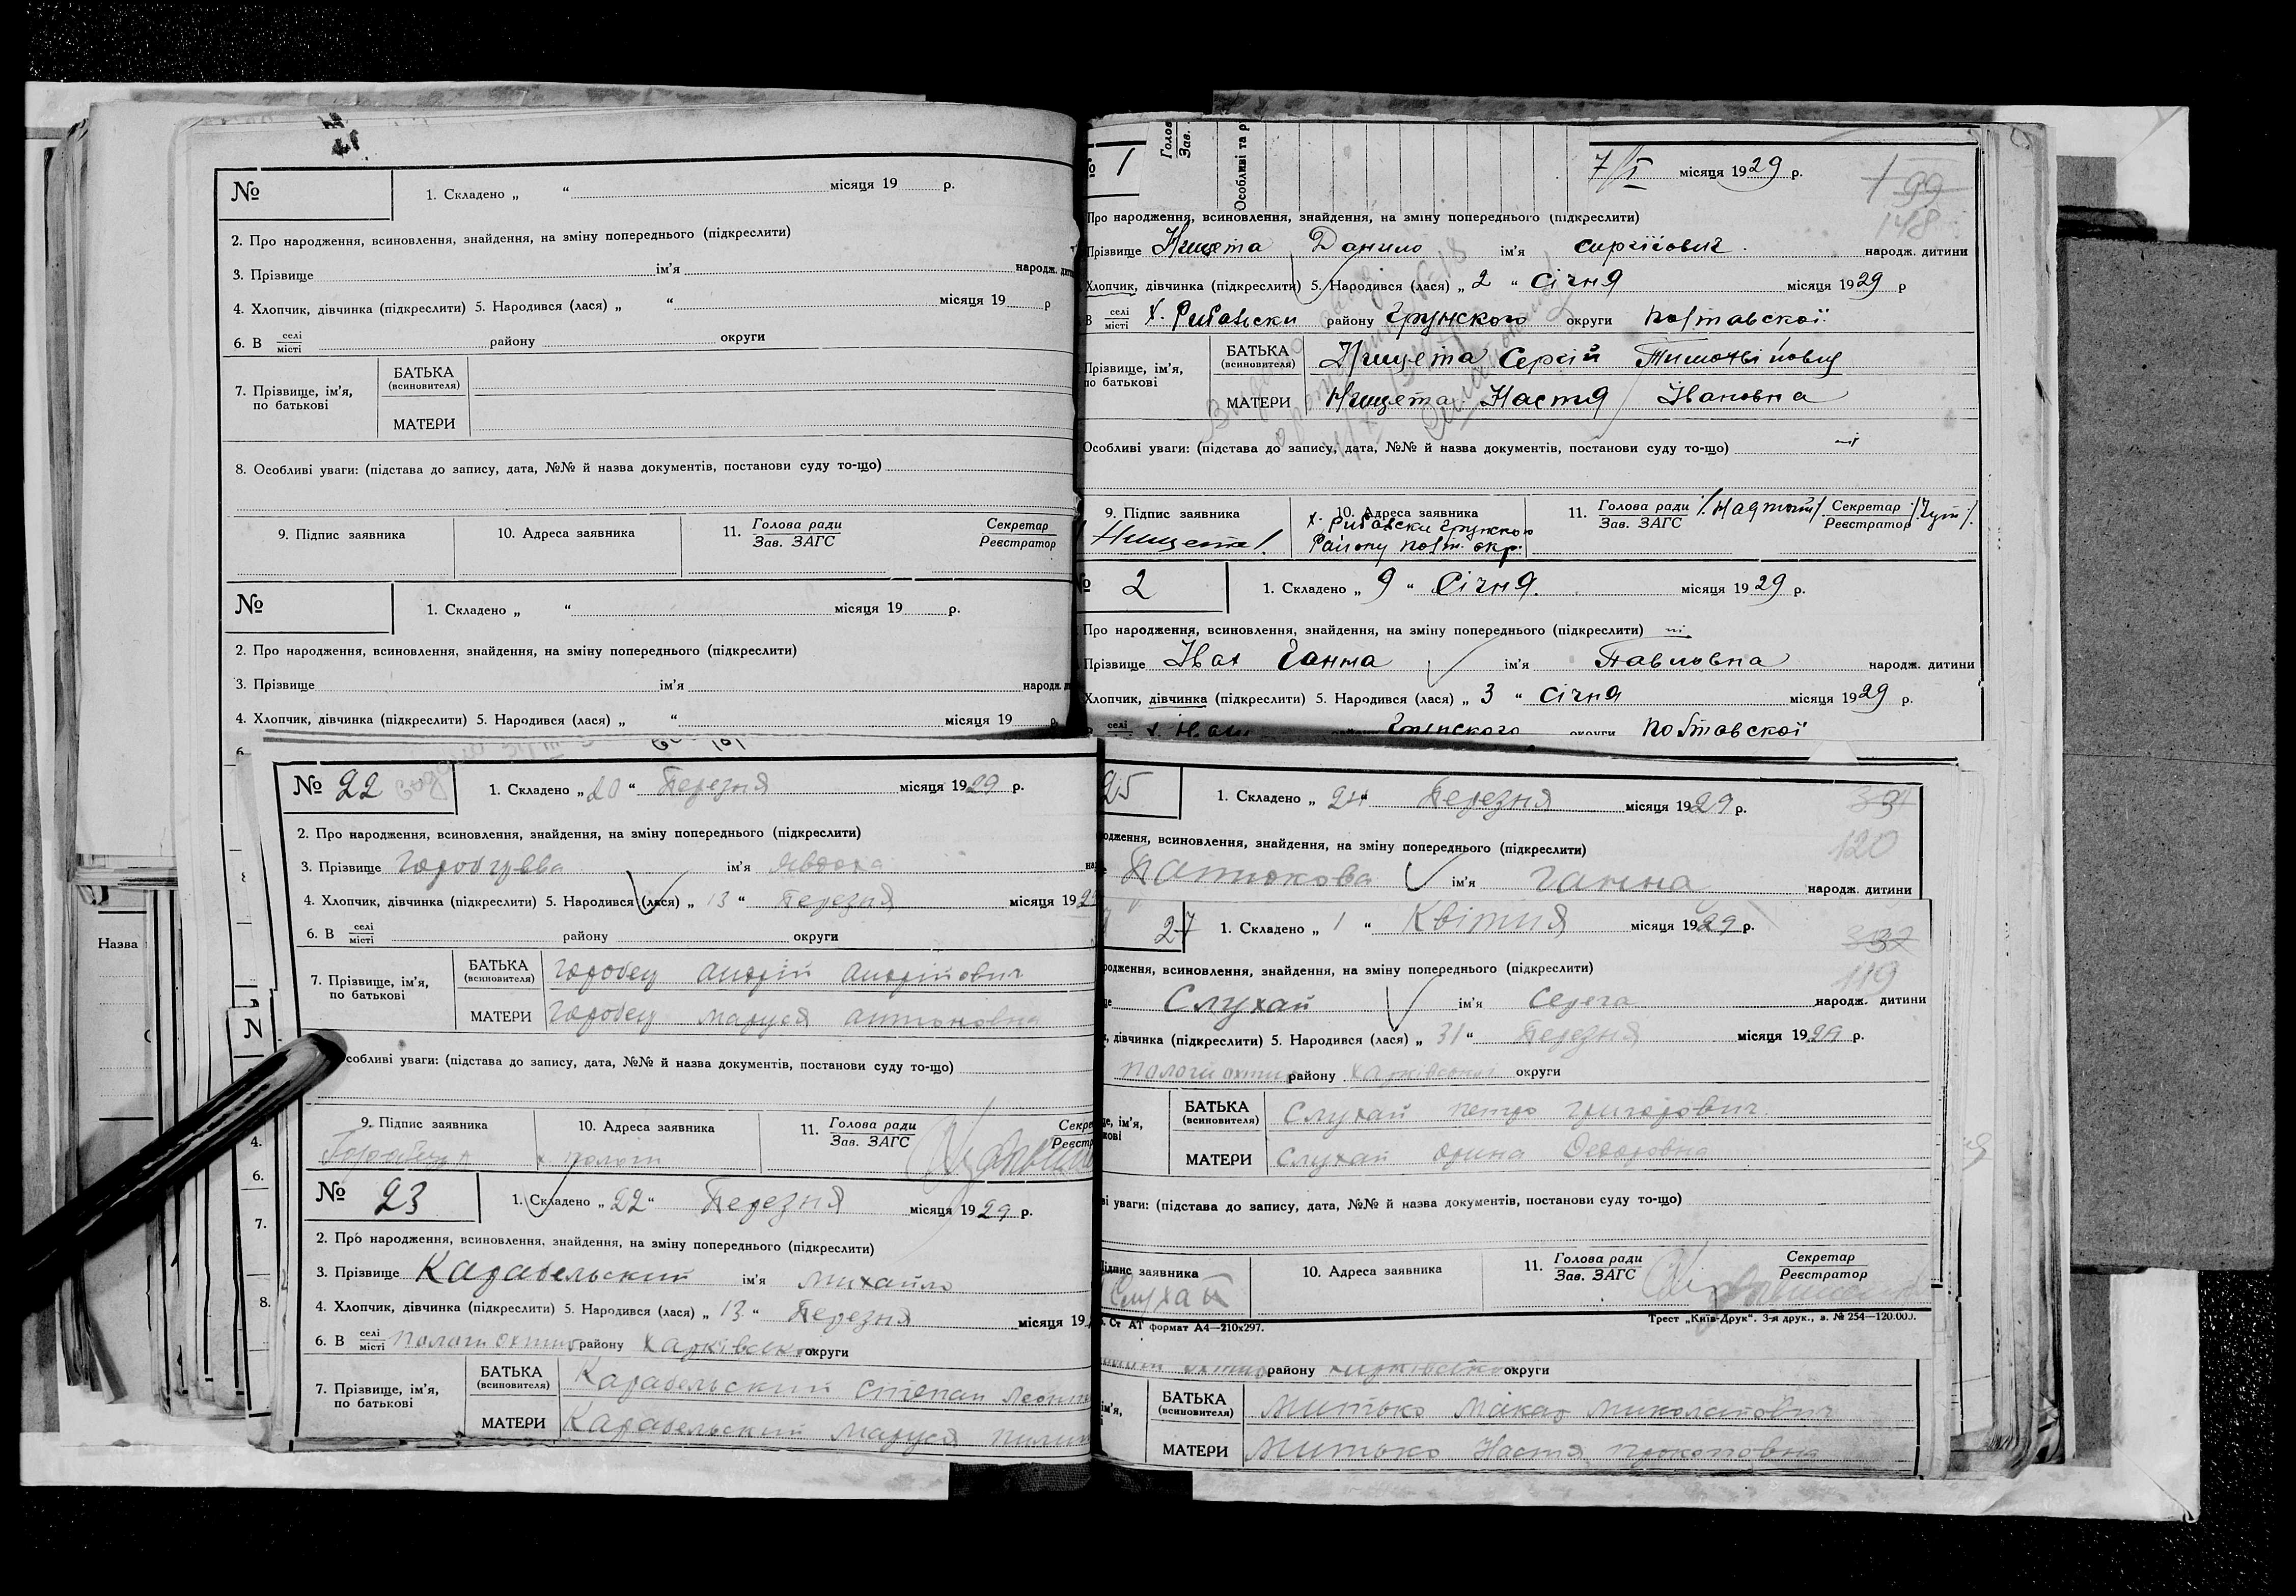 №
1. Складено „ “ місяця 19 р.
2. Про народження, всиновлення, знайдення, на зміну попереднього (підкреслити)
3. Прізвище ім'я народж.
4. Хлопчик, дівчинка (підкреслити) 5. Народився (лася) „ “ місяця 19 р
6. В селі місті району округи
7. Прізвище, ім'я, по батькові
БАТЬКА (всиновителя)
МАТЕРИ
8. Особливі уваги: (підстава до запису, дата, №№ й назва документів, постанови суду то-що)
9. Підпис заявника 10. Адреса заявника 11. Голова ради Зав. ЗАГС Секретар Реєстратор
№
1. Складено „ “ місяця 19 р.
2. Про народження, всиновлення, знайдення, на зміну попереднього (підкреслити)
3. Прізвище ім'я народж.
4. Хлопчик, дівчинка (підкреслити) 5. Народився (лася) „ “ місяця 19 р.
6.
Назва
N
4.
6.
7.
8.
№ 22 1. Складено „ 20 “ Березня місяця 1929 р.
2. Про народження, всиновлення, знайдення, на зміну попереднього (підкреслити)
3. Прізвище ім'я Явдоха
4. Хлопчик, дівчинка (підкреслити) 5. Народився (лася) „ 13 “ Березня місяця 192
6. В селі місті району округи
7. Прізвище, ім'я, по батькові
БАТЬКА (всиновителя) Горобец Андрій Андрійович
МАТЕРИ Горобец Маруся Антоновна
особливі уваги: (підстава до запису, дата, №№ й назва документів, постанови суду то-що)
9. Підпис заявника 10. Адреса заявника 11. Голова ради Зав. ЗАГС Секре Реєстр
х Пологи
№ 23 1. Складено „ 22 “ Березня місяця 1929 р.
2. Про народження, всиновлення, знайдення, на зміну попереднього (підкреслити)
3. Прізвище Карабельский ім'я Михайло
4. Хлопчик, дівчинка (підкреслити) 5. Народився (лася) „ 13 “ Березня місяця 19
6. В селі місті Пологи Охтир району Харківсько округи
7. Прізвище, ім'я, по батькові
БАТЬКА (всиновителя) Карабельский Степан
МАТЕРИ Карабельский Маруся
Голов Зав.
Особливі та р
№ 1 7/I місяця 1929 р.
99
148
Про народження, всиновлення, знайдення, на зміну попереднього (підкреслити)
Прізвище Нищета Данило ім'я Сиргійович народж. дитини
Хлопчик, дівчинка (підкреслити) 5. Народився (лася) „ 2 “ Січня місяця 1929 р
В селі місті х. району Грунского округи Полтавської
Прізвище, ім'я, по батькові
БАТЬКА (всиновителя) Нищета Сергій Тимофійовиц
МАТЕРИ Нищета Настя Івановна
Особливі уваги: (підстава до запису, дата, №№ й назва документів, постанови суду то-що)
9. Підпис заявника 10. Адреса заявника 11. Голова ради Зав. ЗАГС Секретар Реєстратор
Нищета
Району Полт. окр.
№ 2 1. Складено „ 9 “ Січня місяця 1929 р.
Про народження, всиновлення, знайдення, на зміну попереднього (підкреслити)
Прізвище Івах Ганна ім'я Павловна народж. дитини
Хлопчик, дівчинка (підкреслити) 5. Народився (лася) „ 3 “ Січня місяця 1929 р.
селі х. Грунского округи Полтавської
25 1. Складено „ 24 “ Березня місяця 1929 р.
120
одження, всиновлення, знайдення, на зміну попереднього (підкреслити)
Батюкова ім'я Ганна народж. дитини
27 1. Складено „ 1 “ Квітня місяця 1929 р.
119
родження, всиновлення, знайдення, на зміну попереднього (підкреслити)
Слухай ім'я Серега народж. дитини
дівчинка (підкреслити) 5. Народився (лася) „ 31 “ Березня місяця 1929 р.
Пологи Охтир району Харківської округи
БАТЬКА (всиновителя) Слухай Петро Григорович
МАТЕРИ Слухай Орина Федоровна
уваги: (підстава до запису, дата, №№ й назва документів, постанови суду то-що)
Підпис заявника 10. Адреса заявника 11. Голова ради Зав. ЗАГС Секретар Реєстратор
Слухай
Ст АТ формат А4—210х297. Трест „Київ-Друк“. 3-я друк., з. № 254—120.000.
району округи
БАТЬКА (всиновителя) Митько Макар Миколайович
МАТЕРИ Митько Настя Прокоповна